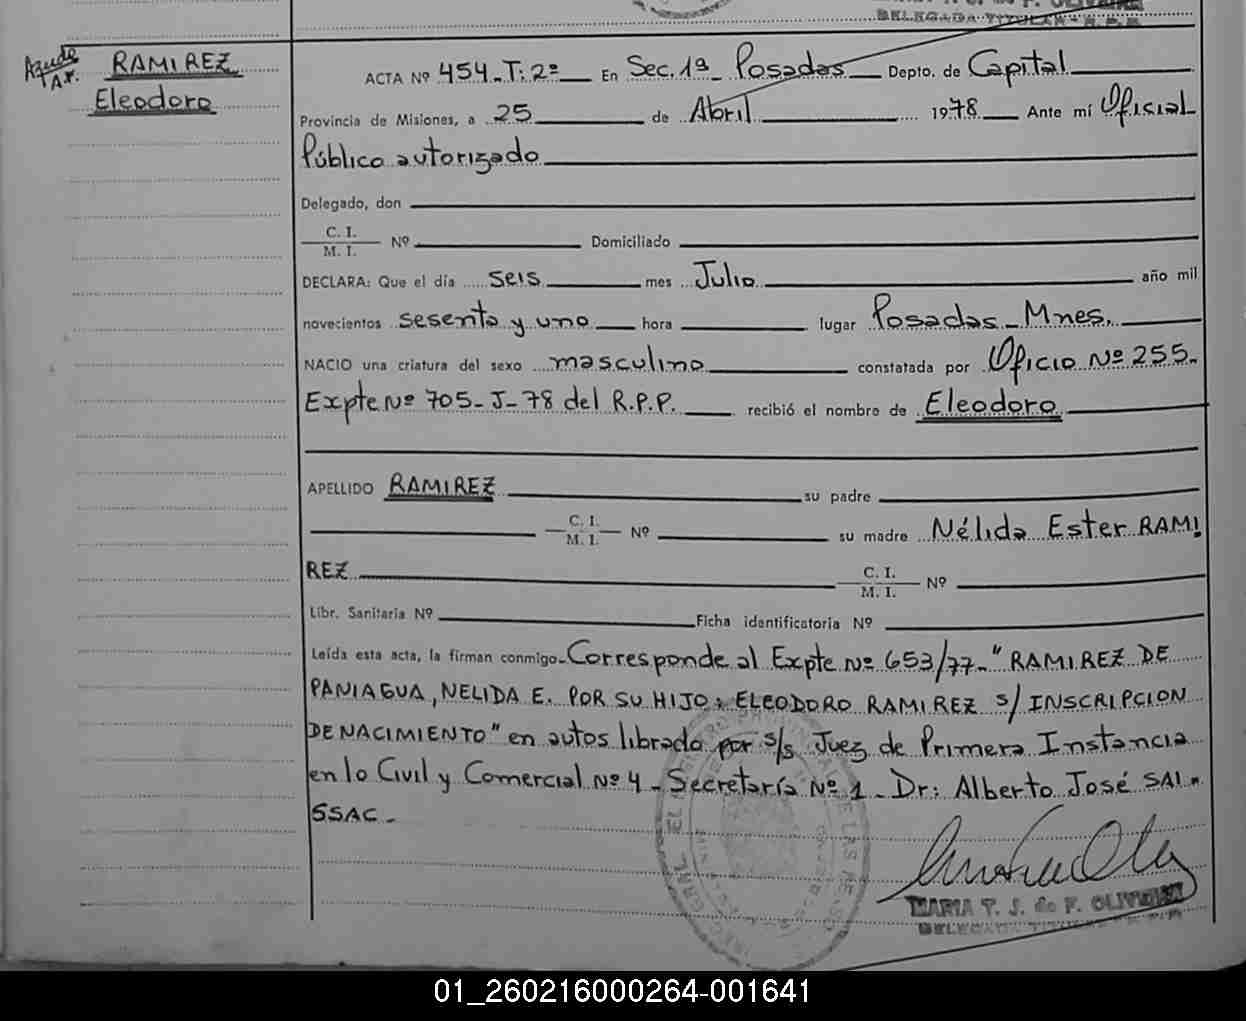 DELEGADA TITULAR - R.P.P.
RAMIREZ
Eleodoro
ACTA Nº 454 - T: 2º En Sec. 1ª Posadas Depto. de Capital
Provincia de Misiones, a 25 de Abril 1978 Ante mí Oficial
Público autorizado
Delegado, don
C. I.
M. I. Nº Domiciliado
DECLARA: Que el día seis mes Julio año mil
novecientos sesenta y uno hora lugar Posadas - Mnes.
NACIO una criatura del sexo masculino constatada por Oficio Nº 255.
Expte Nº 705 - J - 78 del R.P.P. recibió el nombre de Eleodoro
APELLIDO RAMIREZ su padre
C. I.
M. I. Nº su madre Nélida Ester RAMI
REZ C. I.
M. I. Nº
Libr. Sanitaria Nº Ficha identificatoria Nº
Leída esta acta, la firman conmigo - Corresponde al Expte Nº 653/77 - "RAMIREZ DE
PANIAGUA, NELIDA E. POR SU HIJO: ELEODORO RAMIREZ s/ INSCRIPCION
DE NACIMIENTO" en autos librado por s/s Juez de Primera Instancia
en lo Civil y Comercial Nº 4 - Secretaría Nº 1 - Dr: Alberto José SAI -
SSAC -
MARIA T. J. de F. OLIVEIRA
DELEGADA TITULAR - R.P.P.
01_260216000264-001641